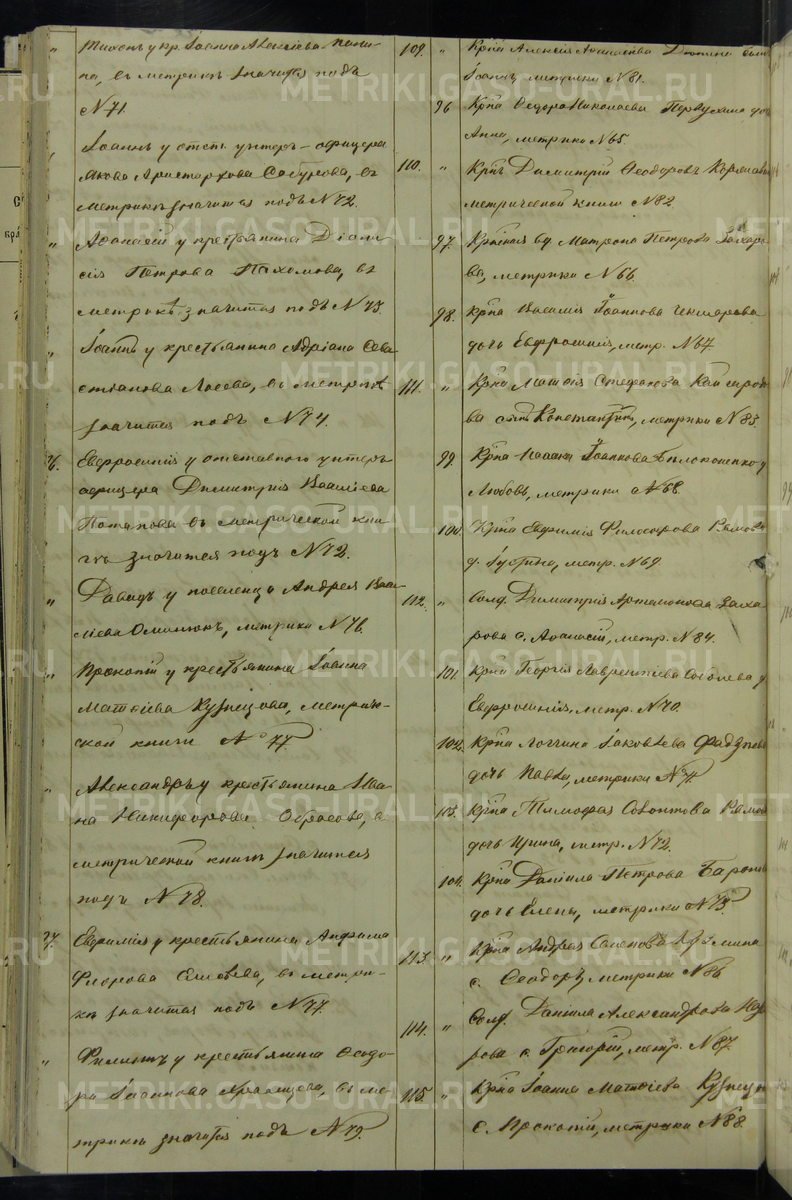 " Тихонъ у кр. Іоанна Алексіева
на, въ метрикѣ значится подъ
№ 71.
Іоаннъ у отст. унтеръ-офицера
Якова Аристархова въ
метрикѣ значится подъ № 72.
" Аѳанасій у крестьянина Діони-
сія Петрова Пахомова, въ
метрикѣ значится подъ № 73.
" Іоаннъ у крестьянина Адріана Сева-
стіанова Лосева, въ метрикѣ
значится подъ № 74.
76. Евфросинія у отставного унтеръ
офицера Димитрія Василіева
Потапова въ метрической кни-
гѣ значится подъ № 72.
" Давидъ у поселенца Андрея Васи-
ліева метрики № 76.
" Прокопій у крестьянина Іоанна
Матѳіева Кузнецова, метриче-
ской книги № 77
" Александръ у крестьянина Ива-
на Никифорова въ
метрической книгѣ значится
подъ № 78.
77. Евфимія у крестьянина Анфима
Флорова въ метри-
кѣ значится подъ № 77.
" Филиппъ у крестьянина Ѳеодо-
ра Іоаннова въ ме-
трикѣ значится подъ № 79.
109. " Крна Алексія Аѳанасіева сынъ
Іоаннъ, метрики № 81.
96 Крна Ѳедора Николаева Первухина дочь
Анна, метрика № 65.
110. " Крнъ Димитрій Ѳеодоровъ
метрической книги № 82
97. Крнская вд. Матрона Петрова Захаро-
ва, метрики № 66.
98. Крна Василія Іоаннова Чекмарева
дочь Евфросинія, метр. № 67.
111. " Крна Матѳія Стефанова
ва сынъ Константинъ, метрики № 83.
99. Крна Іоаннова
Любовь, метрики № 68.
100. Крна Евфимія Философова
д. Іустина, метр. № 69.
112. " Солд. Димитрія Артамонова Заха-
рова с. Аѳанасій, метр. № 84.
101. Крна Георгія Лаврентіева Соколова д
Евфросинія, метр. № 70.
102. Крна Логгина Іаковлева
дочь Павла, метрики № 71.
103. Крна Тимофея
дочь Ирина, метр. № 72.
104. Крна Даніила Петрова
дочь Елена, метрики № 73.
113. " Крна Андрея Семенова
с. Ѳеодоръ метрики № 86
114. " Солд. Даніила Александрова
рова с. Григорій, метр. № 87.
115. " Крна Іоанна Матѳіева Кузнецо
с. Прокопій, метрики № 88
METRIKI.GASO-URAL.RU